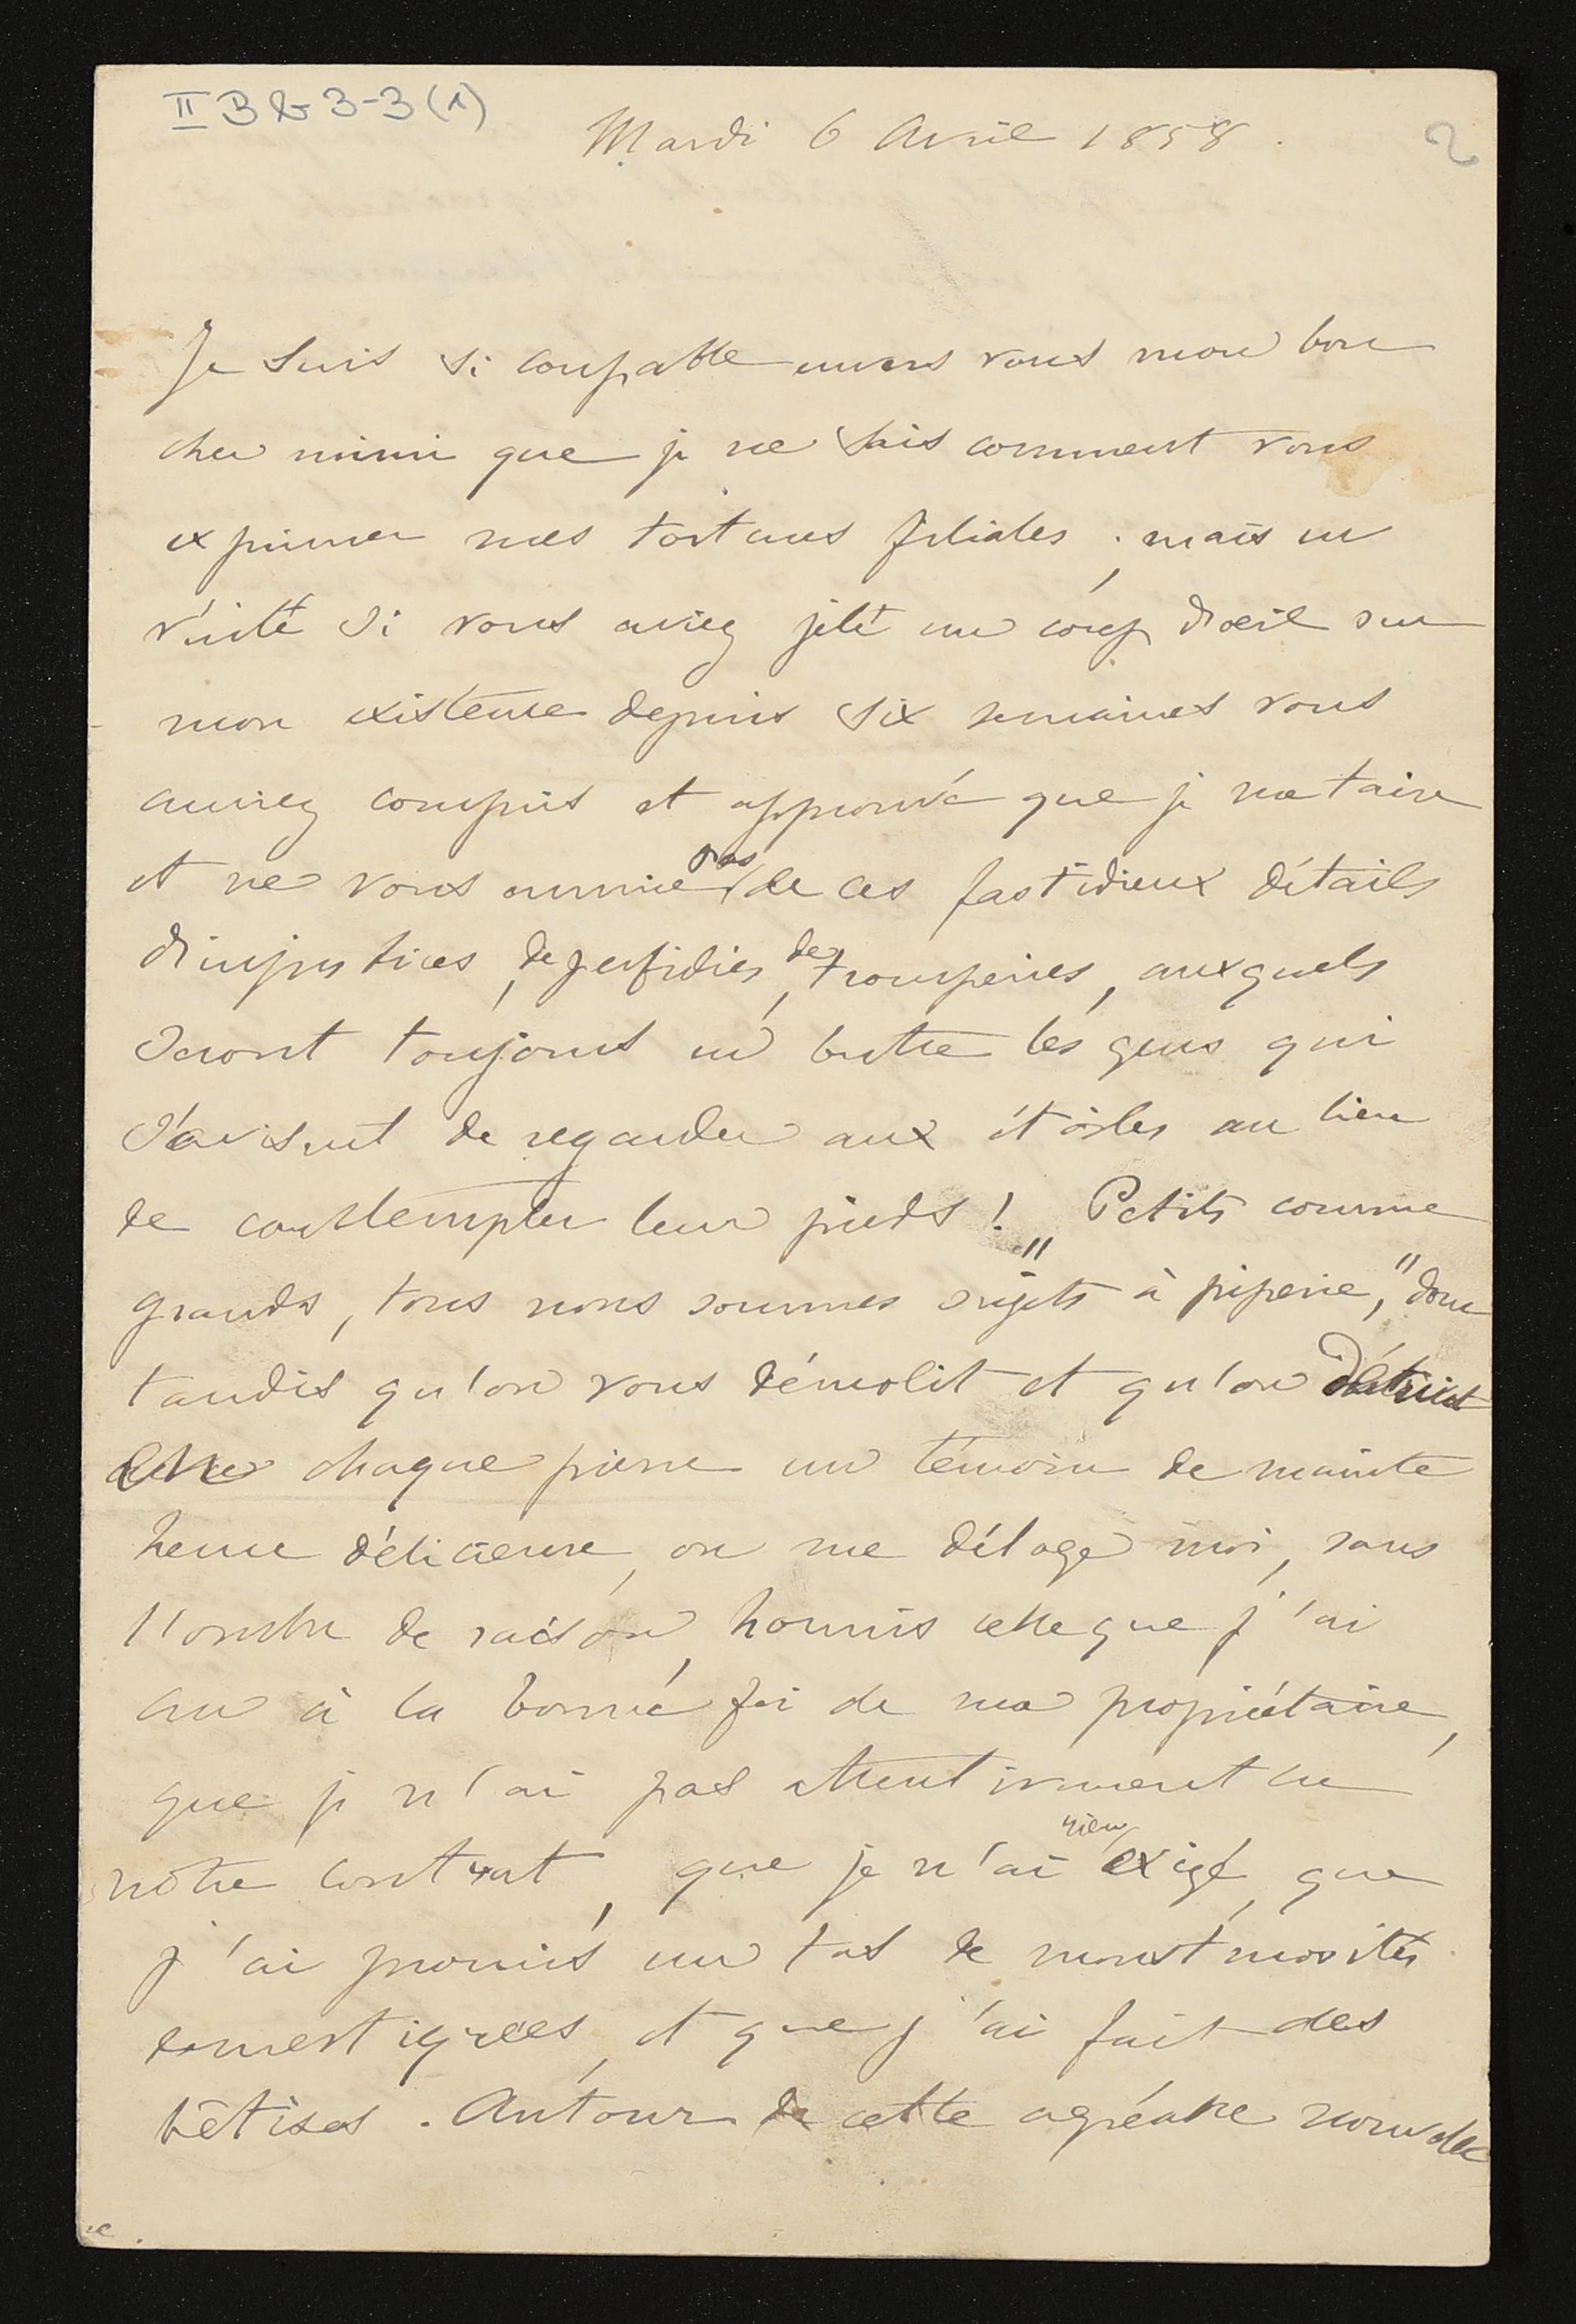 II B b 3-3 (1)
Mardi 6 Avril 1858.
2
Je suis si coupable envers vous mon bon
cher mimi que je ne sais comment vous
exprimer mes tortures filiales ; mais en
vérité si vous aviez jeté un coup d'oeil sur
mon existence depuis six semaines vous
auriez compris et approuvé que je me taise
et ne vous ennuie pas de ces fastidieux détails
d'injustices, de perfidies, de tromperies, auxquels
seront toujours en butte les gens qui
s'avisent de regarder aux étoiles au lieu
de contempler leur pieds ! Petits comme
grands, tous nous sommes "sujets à piperie," donc
tandis qu'on vous démolit et qu'on détruit
avec chaque pierre un témoin de mainte
heure délicieuse, on me déloge moi, sans
l'ombre de raison, hormis celle que j'ai
cru à la bonne foi de ma propriétaire,
que je n'ai pas attentivement lu
notre contrat, que je n'ai rien exigé, que
j'ai promis un tas de monstruosités
et que j'ai fait des
bêtises. Autour de cette agréable nouvelle